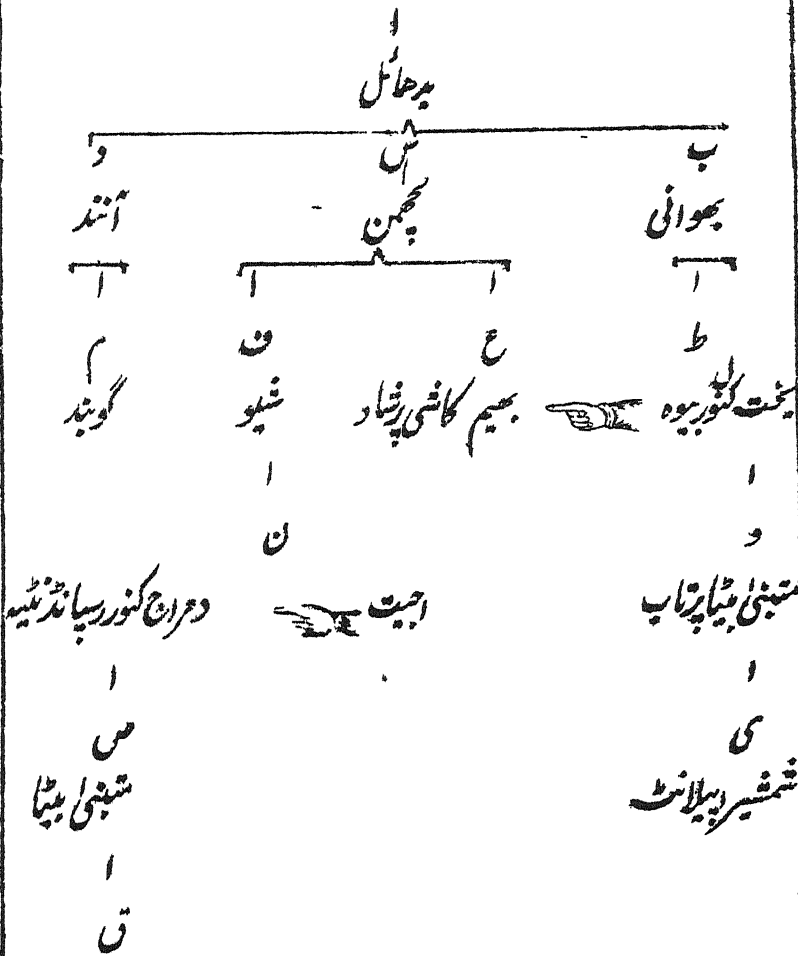 ا
بدھائل
ب س و
بھوانی لچھمن آنند
ا ا ا ا
ط ع ف م
بخت کنور بیوہ ل بھیم کاشی پرشاد شیو گوبند
ا ا
و ن
متبنیٰ بیٹا پرتاپ اجیت دھراج کنور رسپانڈنٹیہ
ا ا
ی ص
شمشیر اپیلانٹ متبنیٰ بیٹا
ا
ق